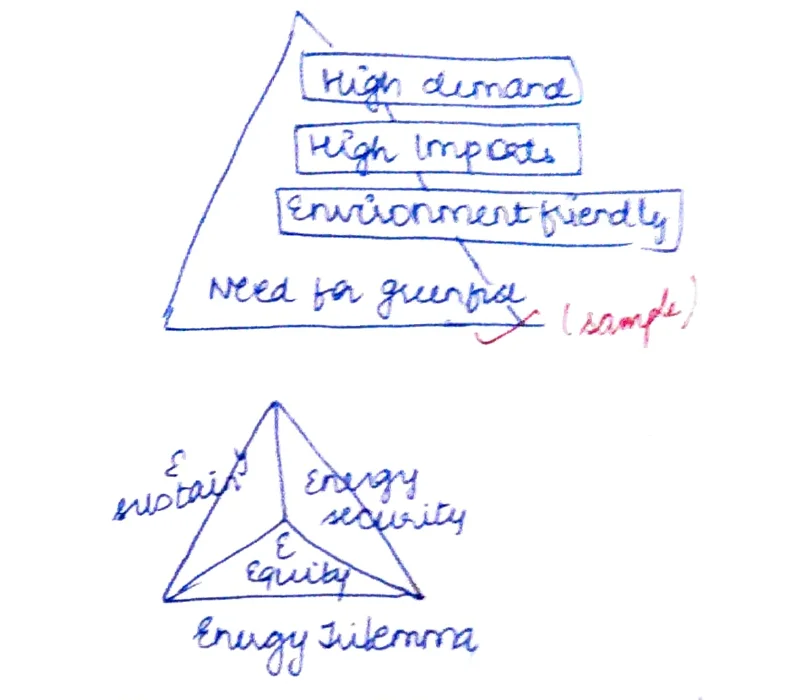 High demand
High Imports
Environment friendly
Need for
(sample)
E
sustain
Energy
security
E
Equity
Energy Trilemma